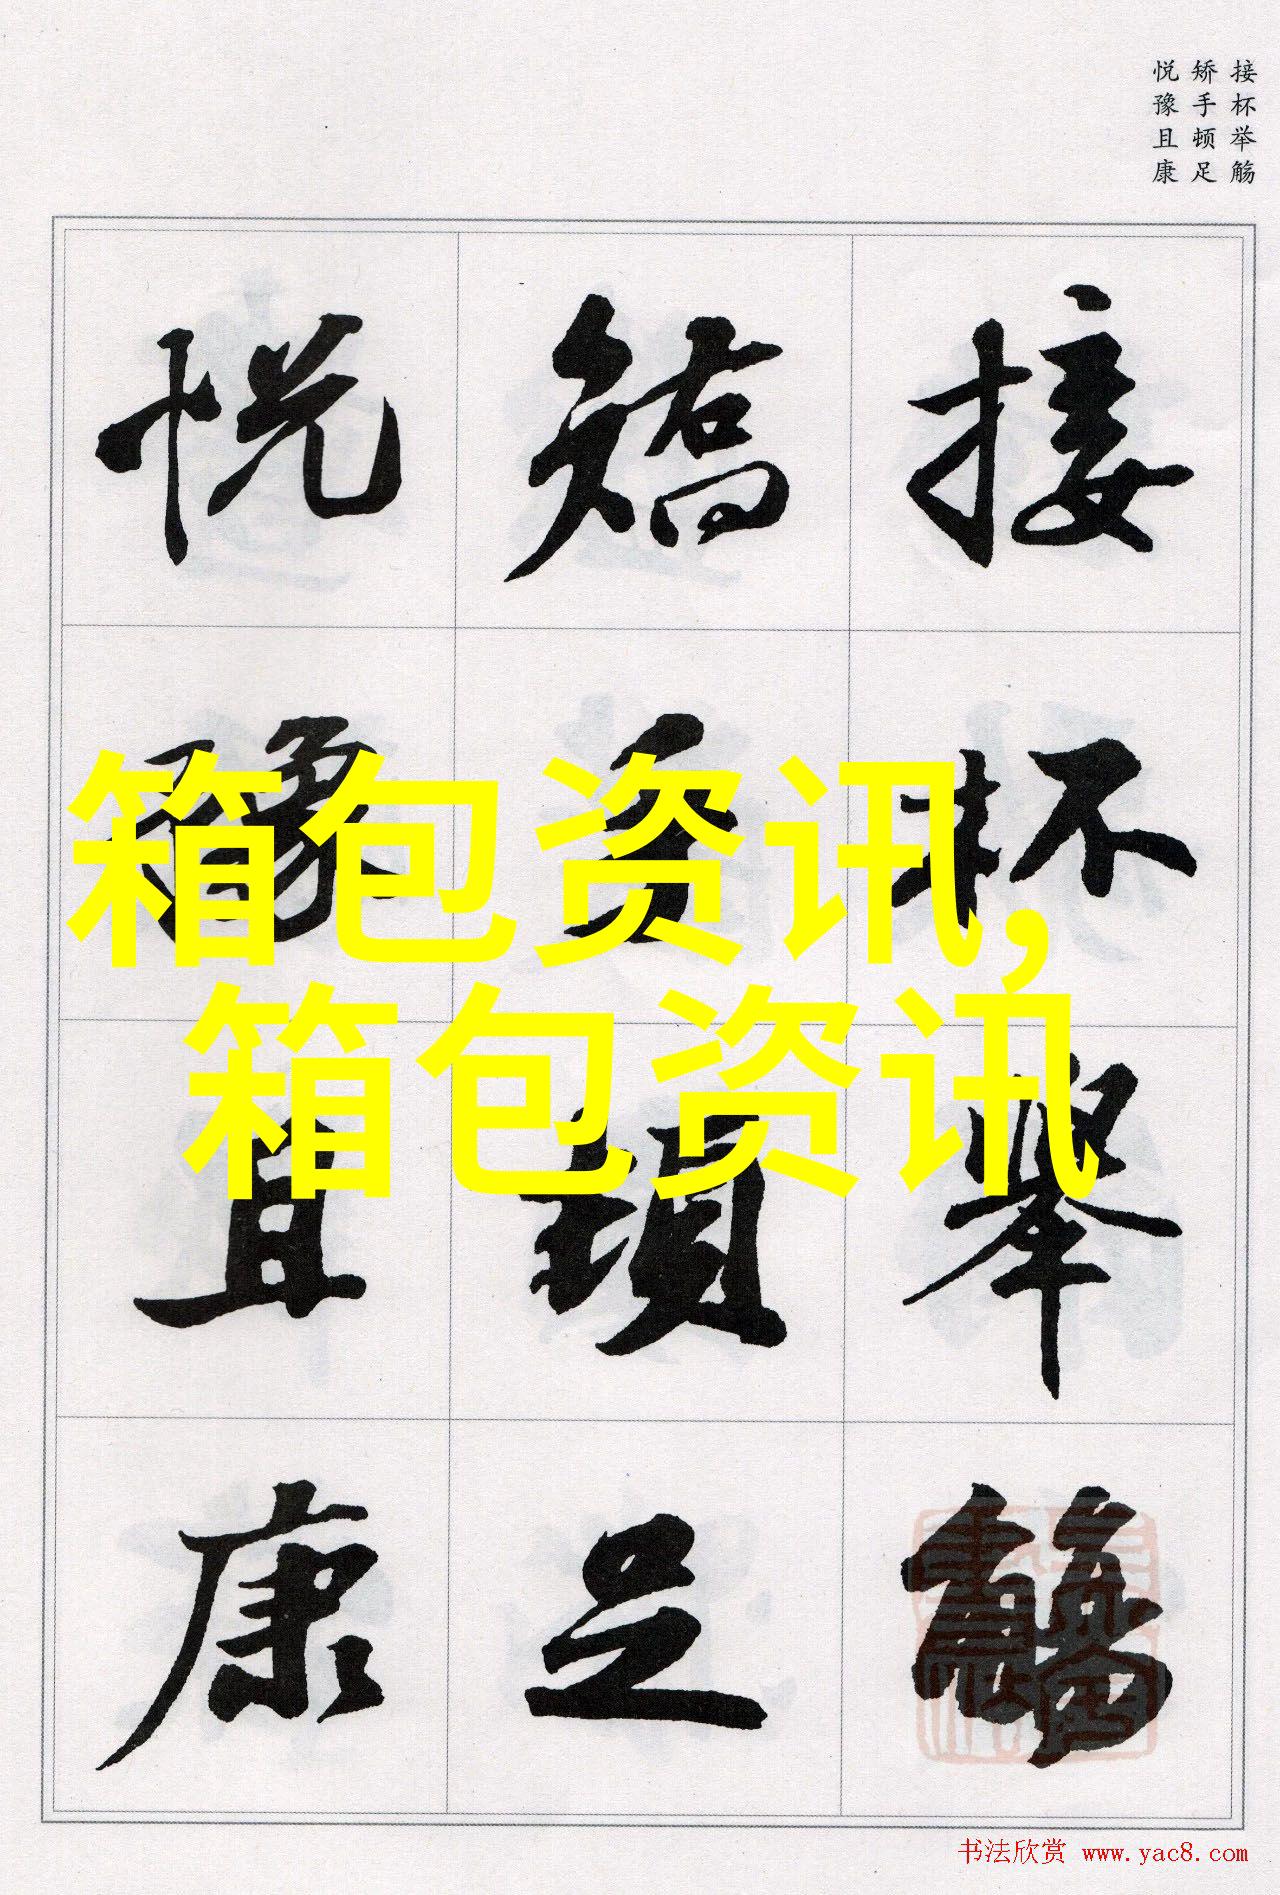 接杯举觞
矫手顿足
悦豫且康
接杯舉觴
矯手頓足
悦豫且康
箱包资讯,
箱包资讯
书法欣赏 www.yac8.com